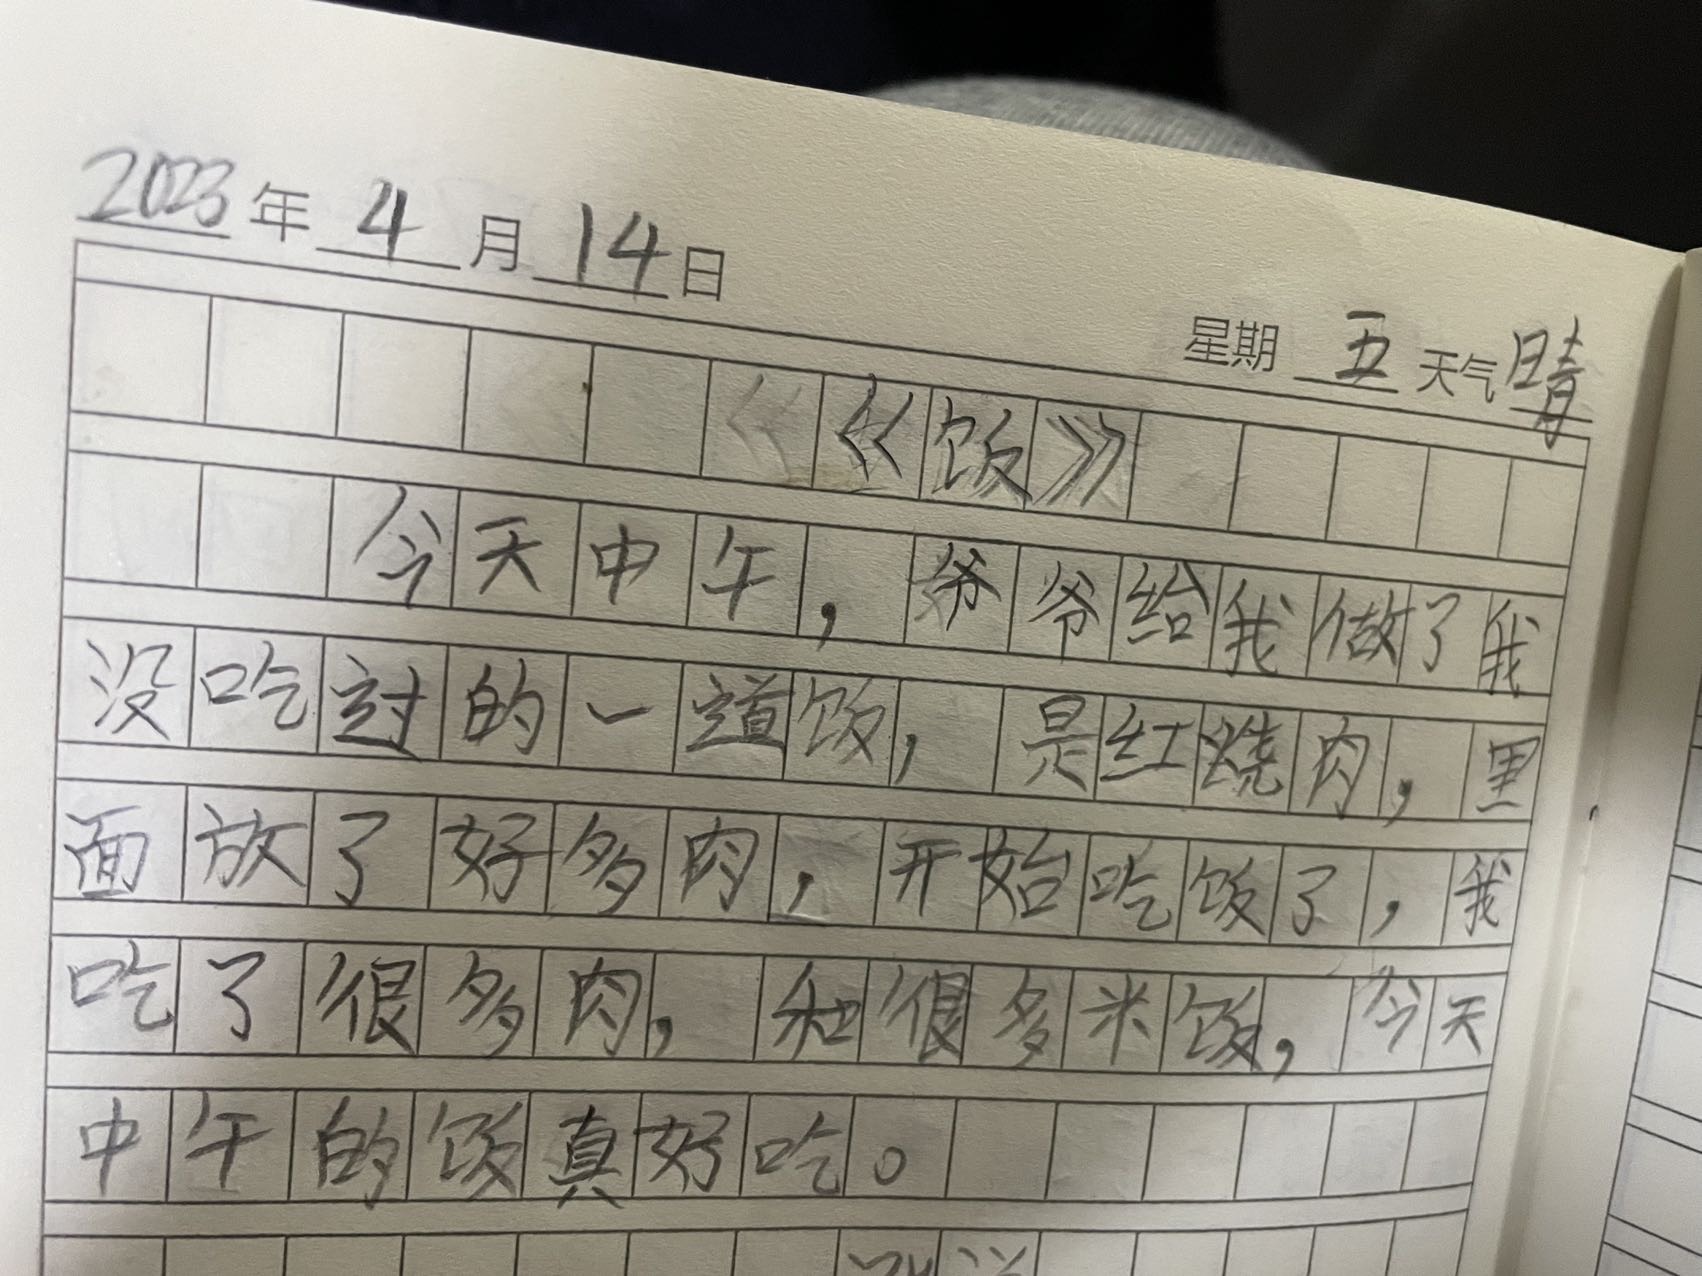 2023年4月14日
星期五天气晴
《饭》
今天中午，爷爷给我做了我
没吃过的一道饭，是红烧肉，里
面放了好多肉，开始吃饭了，我
吃了很多肉，和很多米饭，今天
中午的饭真好吃。